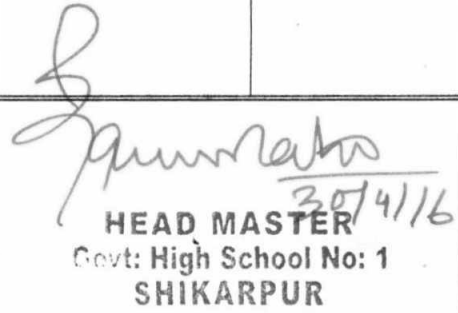 30/4/16
HEAD MASTER
Govt: High School No: 1
SHIKARPUR